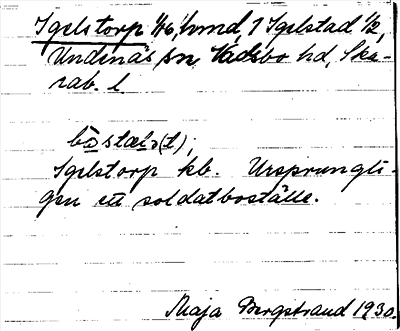 Igelstorp 1/16 hmd, 1 Igelstad 1/2,
Undenäs sn Vadsbo hd, Ska-
rab. l.
Igelstorp kb. Ursprungli-
gen ett soldatboställe.
Maja Bergstrand 1930.